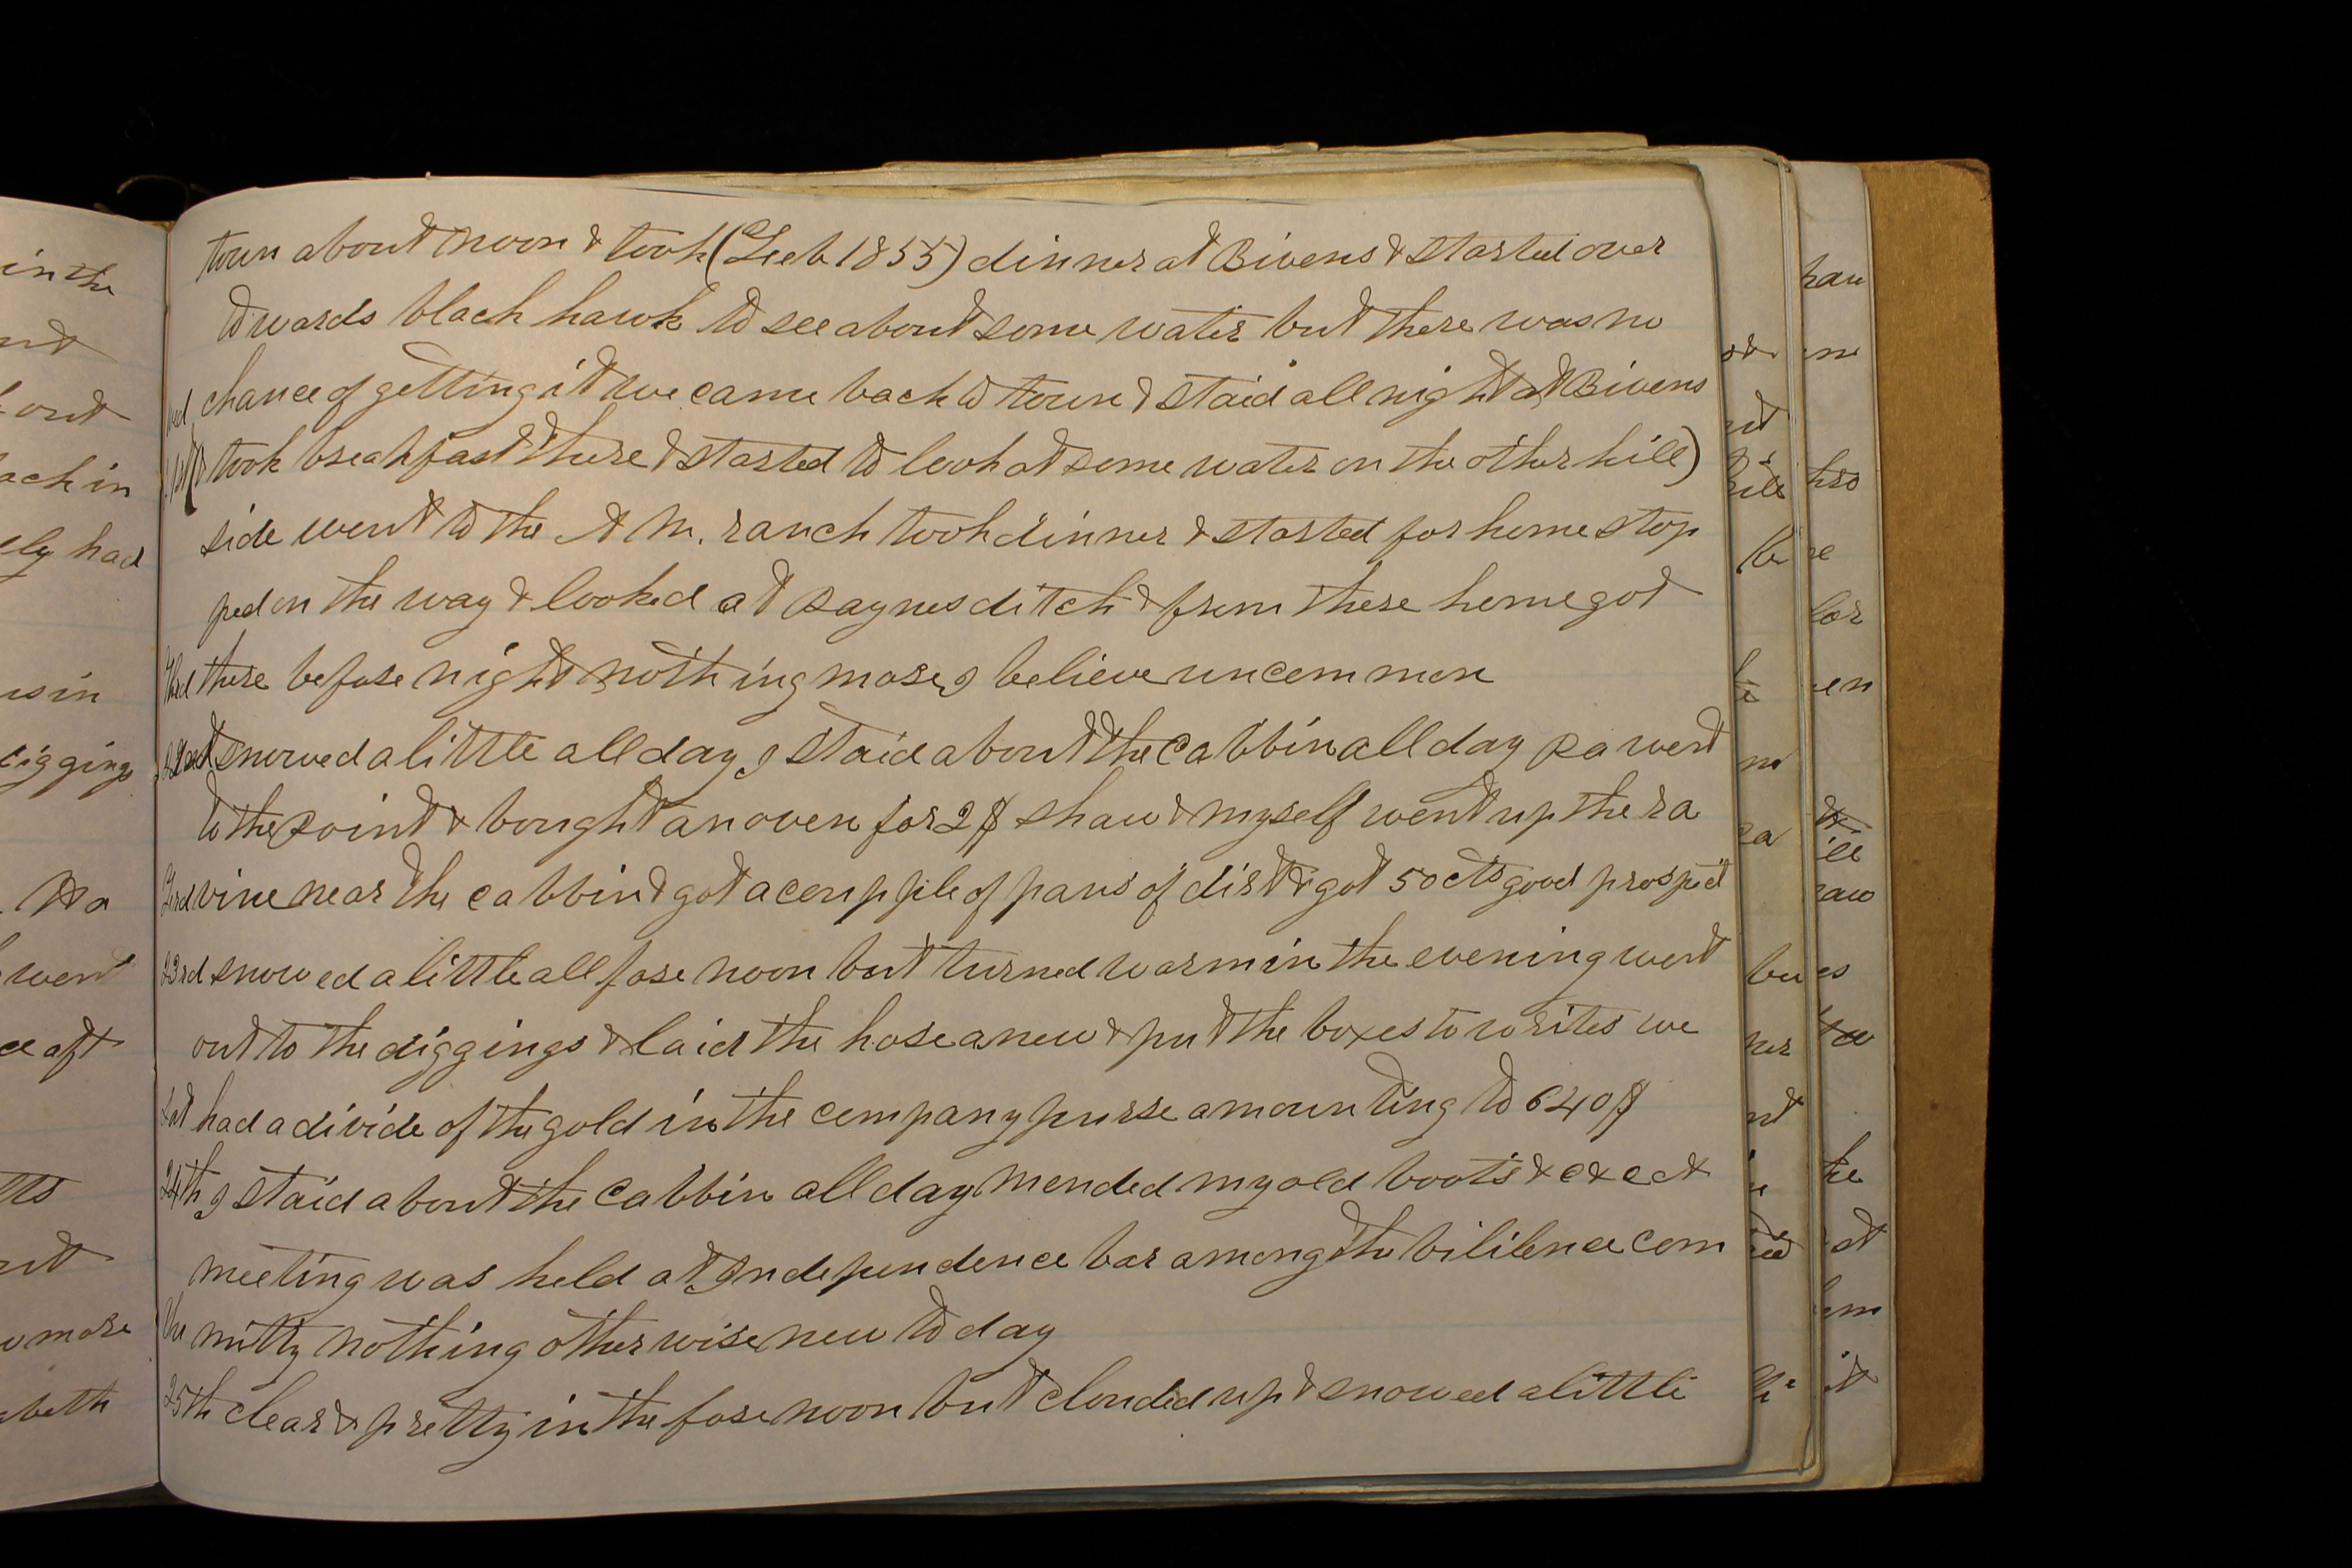 town about noon & took (Feb 1855) dinner at Bivens & started over
towards black hawk to see about some water but there was no
wed chance of getting it we came back to town & staid all night at Bivens
took breakfast there & started to look at some water on the other hill)
side went to the A M. ranch took dinner & started for home stop
ped on the way & looked at Paynes ditch & from there home got
there before night nothing more I believe uncommon
snowed a little all day I staid about the cabbin all day Pa went
to the point & bought an oven for 2$ Shaw & myself went up the ra
vine near the cabbin & got a coupple of pans of dirt & got 50 cts good prospect
23rd snowed a little all fore noon but turned warm in the evening went
out to the diggings & laid the hose anew & put the boxes to writes we
sat had a divide of the gold in the company purse amounting to 640$
24th I staid about the cabbin all day mended my old boots & c & c &
meeting was held at Independence bar among the bililence com
nitty nothing otherwise new to day
25th clear & pretty in the fore noon but clouded up & snowed a little
in the
out
ach in
ely had
diggings
went
ce aft
more